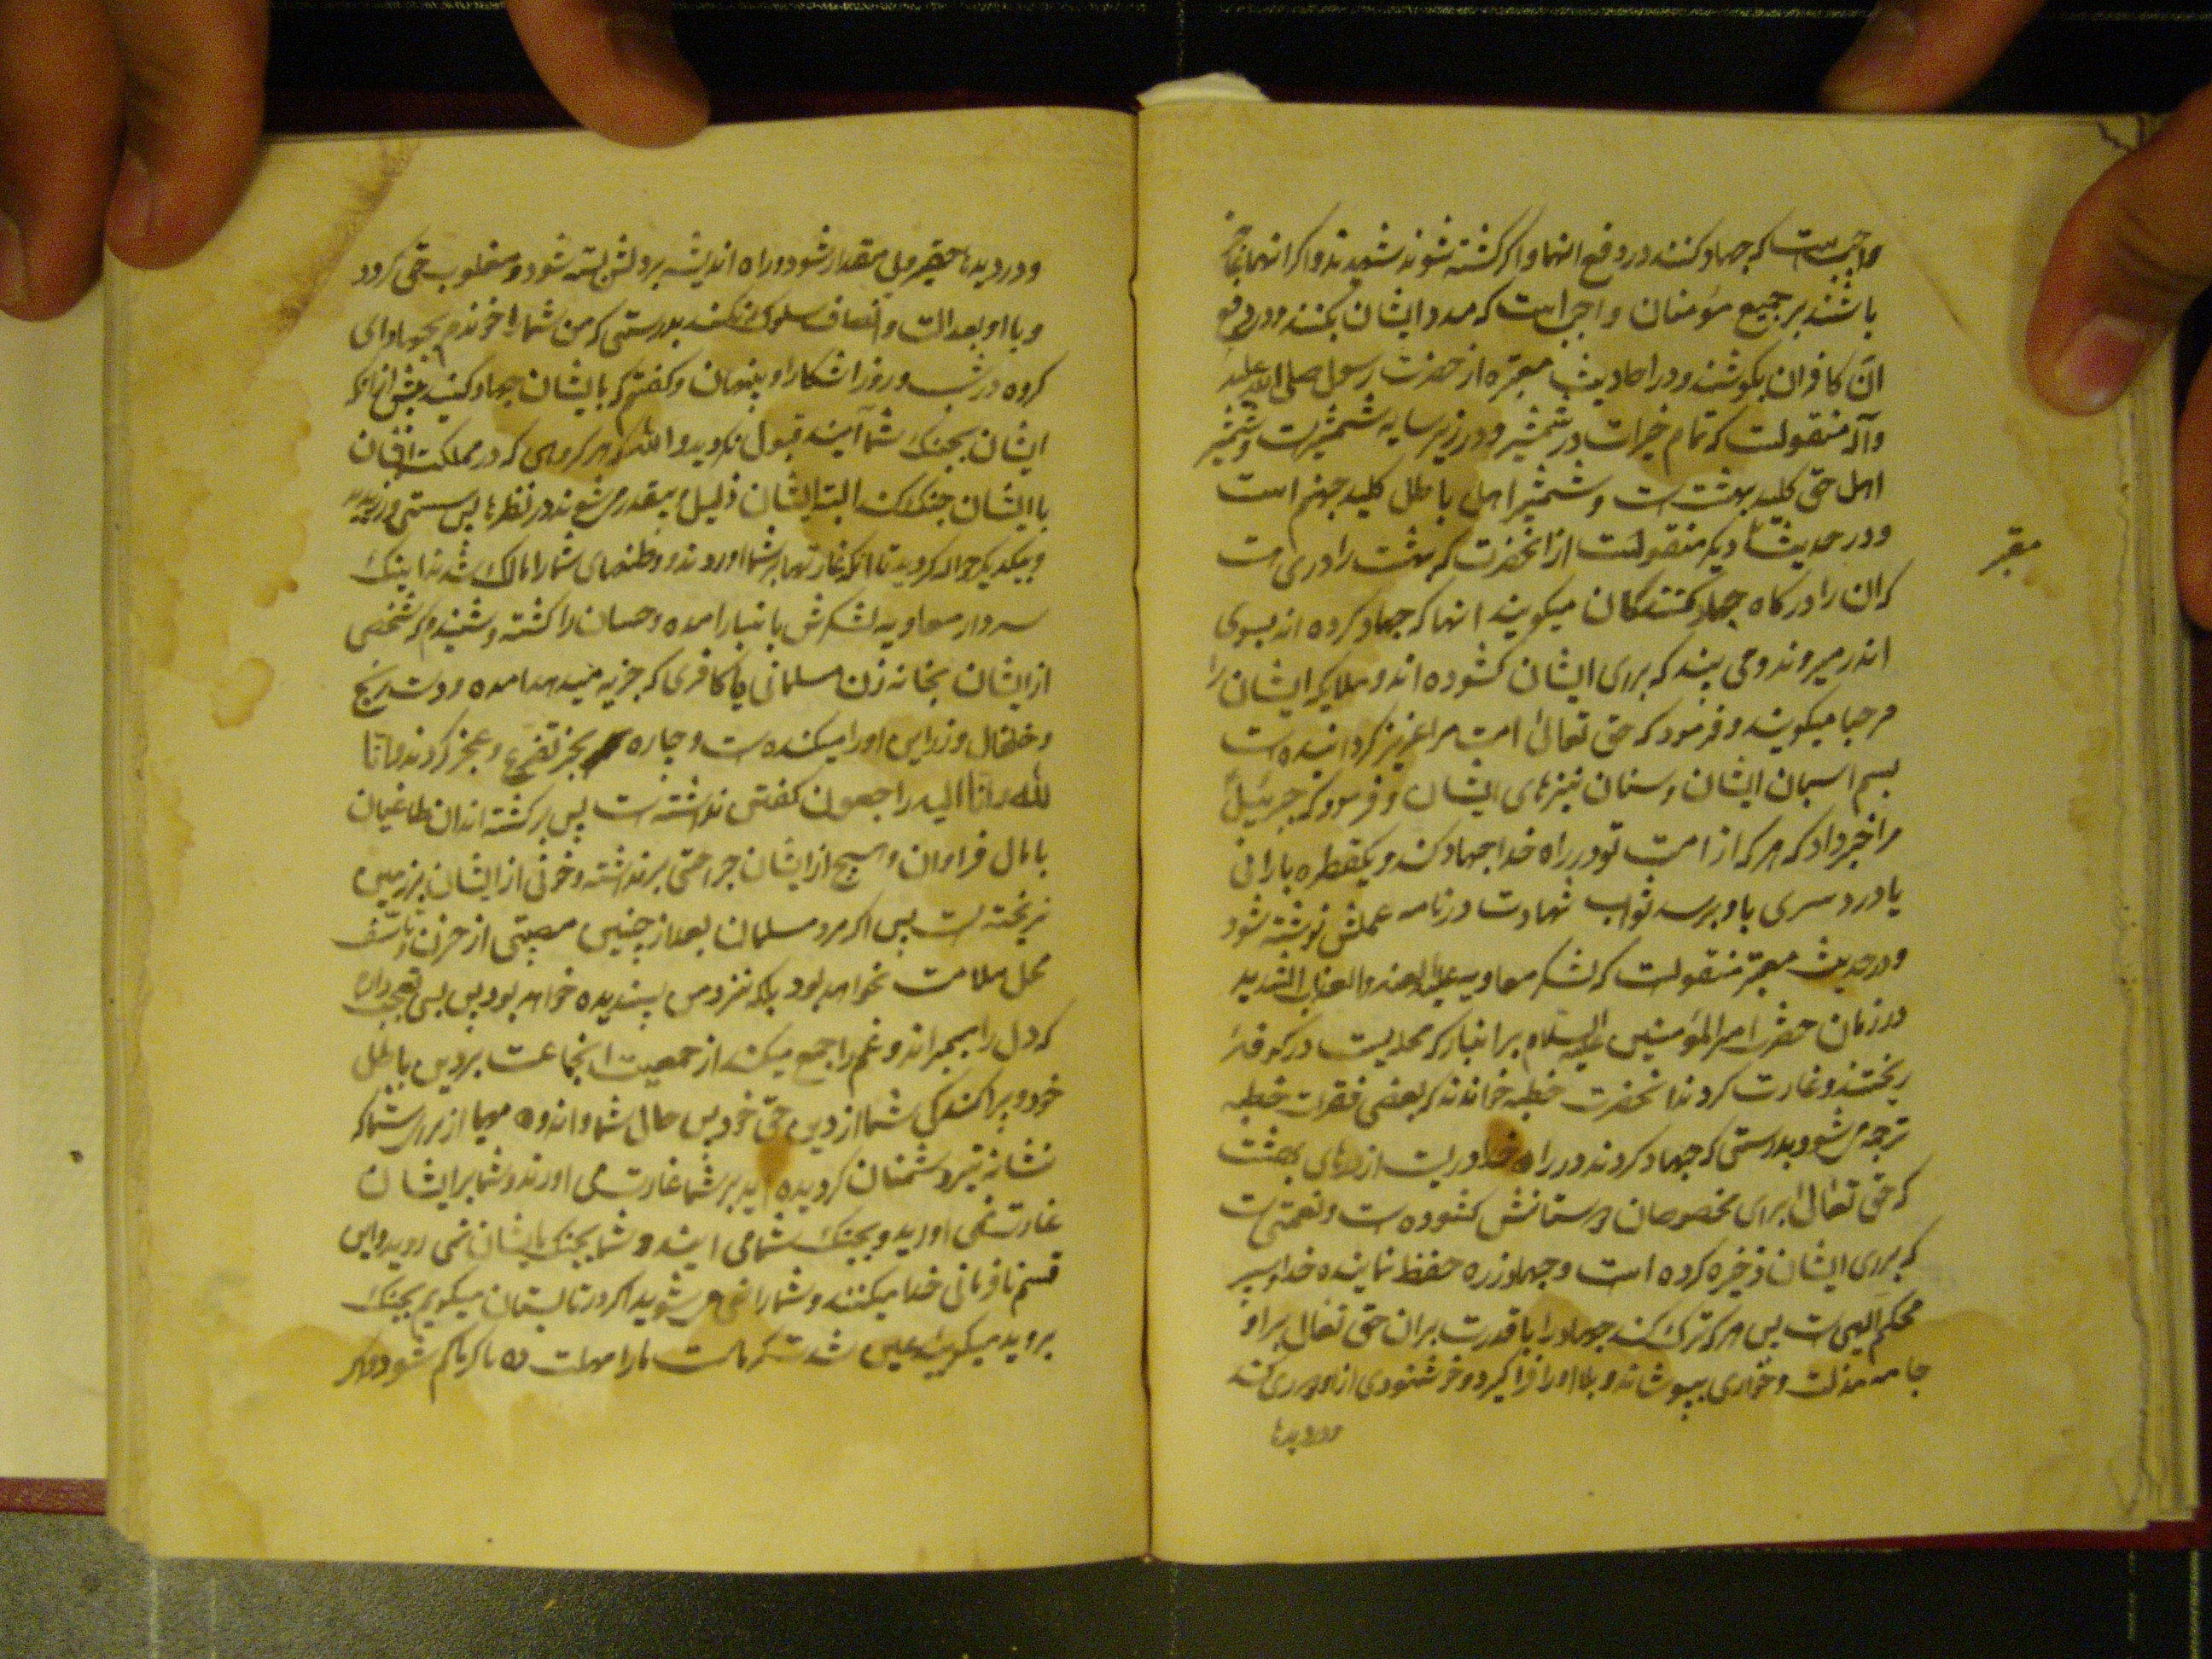 واجبست که جهاد کنند در دفع انها و اگر کشته شوند شهیدند و اگر انها عاجز
باشند بر جمیع مؤمنان واجب است که مدد ایشان بکنند و در دفع
ان کافران بکوشند و در احادیث معتبره از حضرت رسول صلی الله علیه
وآله منقولست که تمام خیرات در شمشیر و در زیر سایه شمشیرست و شمشیر
اهل حق کلید بهشت ست و شمشیر اهل باطل کلید جهنم است
و در حدیث دیگر منقولست از انحضرت که بهشت را دری هست
که ان را درگاه جهاد کنندگان میگویند انها که جهاد کرده اند بسوی
اندر میروند و می بینند که برای ایشان گشوده اند و ملایکه ایشان را
مرحبا میگویند و فرمود که حق تعالی امت مرا عزیز گردانیده ست
بسم اسبان ایشان و سنان نیزهای ایشان و فرمود که جبرئیل
مرا خبر داد که هر که از امت تو در راه خدا جهاد کند و یکقطره بارانی
یا درد سری باو برسد ثواب شهادت در نامه عملش نوشته شود
و در حدیث معتبر منقولست که لشکر معاویه علیه اللعنه والعذاب الشدید
در زمان حضرت امیر المؤمنین علیه السلام بر انبار که محلیست در کوفه
ریختند و غارت کردند انحضرت خطبه خواندند که بعضی فقرات خطبه
ترجمه می شود بدرستی که جهاد کردند در راه خدا دریست از درهای بهشت
که حق تعالی برای مخصوصان دوستانش گشوده ست و نعمتی ست
که برای ایشان ذخیره کرده است و جهاد زره حفظ نماینده خدا و سپر
محکم الهی ست پس هر که ترک کند جهاد را با قدرت بران حق تعالی بر او
جامه مذلت و خواری بپوشاند و بلا او را فرا گیرد و خوشنودی از او دوری کند
و در دیدها
معتبر
و در دیدها حقیر و بی مقدار شود و راه اندیشه بر دلش بسته شود و مغلوب حق گردد
و با او بعدالت و انصاف سلوک نکنند بدرستی که من شما را خوندم بجهاد ای
گروه در شب و روز اشکارا و پنهان و گفتم که با ایشان جهاد کنید پیش از انکه
ایشان بجنگ شما آیند قبول نکردید والله که هر گروهی که در مملکت ایشان
با ایشان جنگ کنند البته ایشان ذلیل و بیقدر می شوند در نظرها پس سستی ورزیدید
و بیکدیگر حواله کردید تا انکه غارتها بر شما اوردند و وطنهای شما را مالک شدند اینک
سردار معاویه لشکرش بانبار امده و حسان را کشته و شنیدم که شخصی
از ایشان بخانه زن مسلمانی یا کافری که جزیه میدهد امده و دست رنج
و خلخال و زراین او را میکنده ست و چاره بجز تضرع و عجز کردند و انا
لله و انا الیه راجعون گفتن نداشته ست پس برگشته اند ان طاغیان
با مال فراوان و هیچ از ایشان جراحتی برنداشته و خونی از ایشان بر زمین
نریخته ست پس اگر مرد مسلمان بعد از چنین مصیبتی از حزن و تأسف
محل ملامت نخواهد بود بلکه نزد من پسندیده خواهد بود پس بسی تعجب دارم
که دل را میمیراند و غم را جمع میکند از جمعیت انجماعت بر دین باطل
خود و پراکندگی شما از دین حق خود پس حال شما و اندوه مهیا از برای شما که
نشانه تیر دشمنان گردیده اید بر شما غارت می اورند و شما بر ایشان
غارت نمی اورید و بجنگ شما می ایند و شما بجنگ ایشان نمی روید و این
قسم نافرمانی خدا میکنند و شما راضی می شوید اگر در تابستان میگویم بجنگ
بروید میگویند عین شدت گرماست ما را مهلت ده تا گرما کم شود و اگر